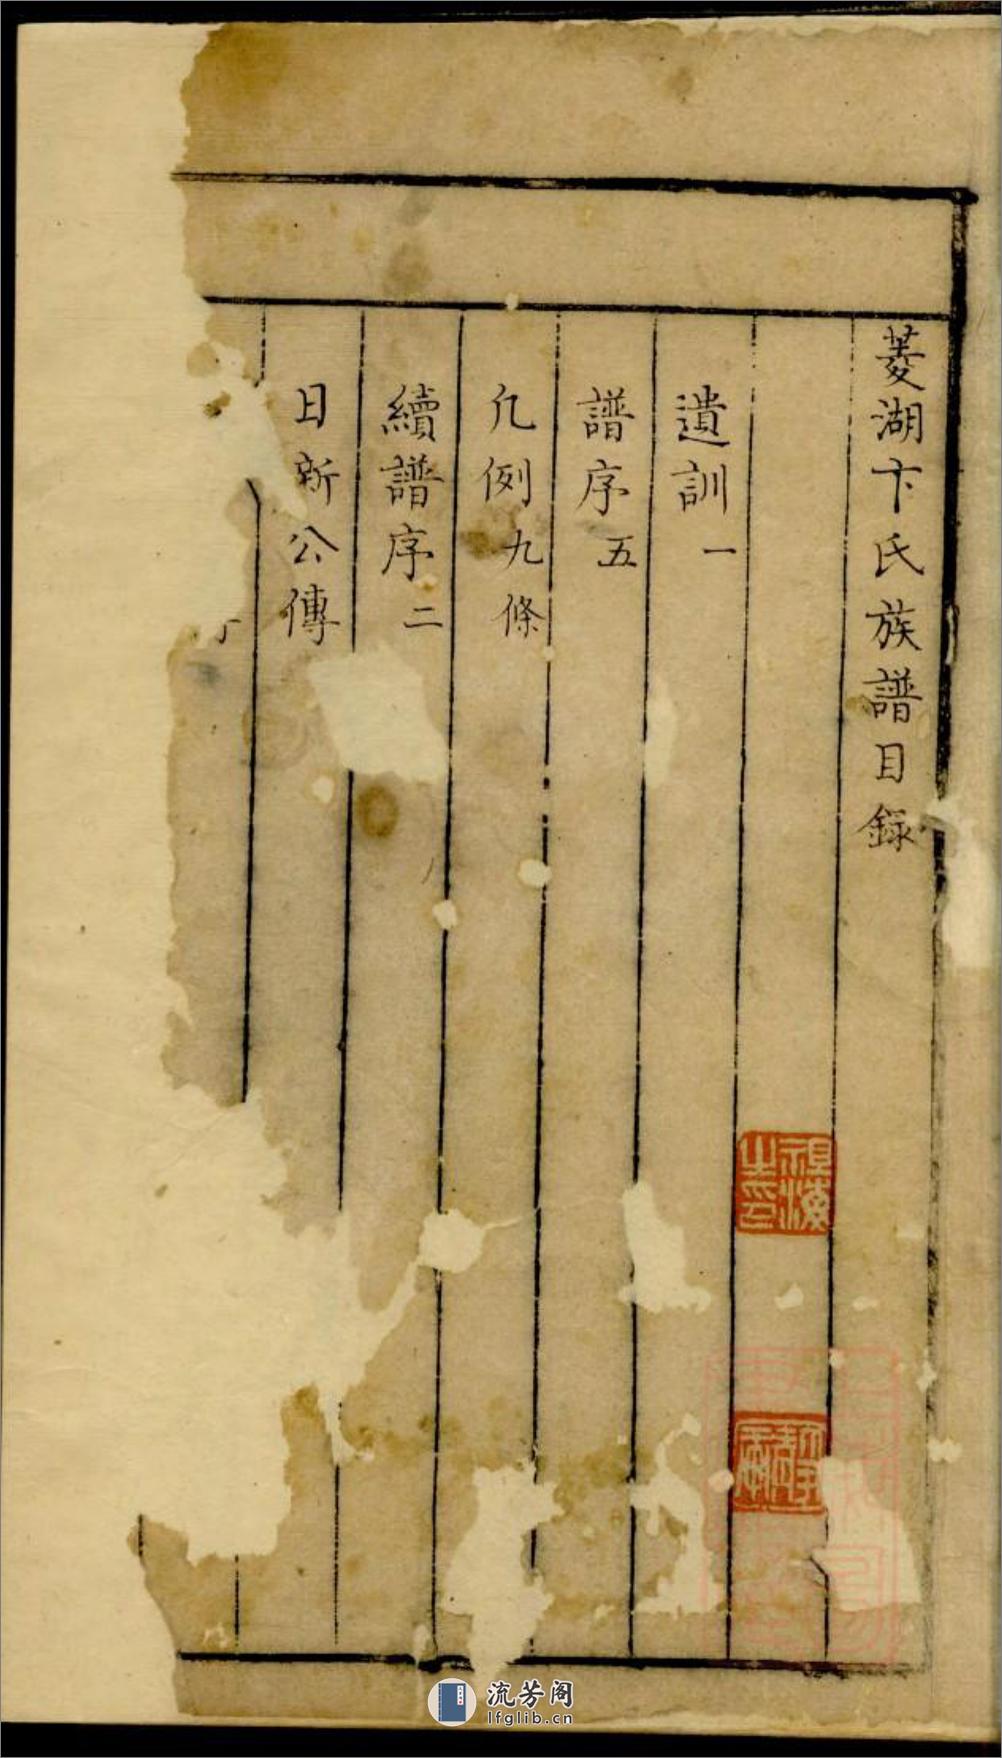 菱湖卞氏族譜目錄
遺訓一
譜序五
凡例九條
續譜序二
日新公傳
流芳阁
lfglib.cn